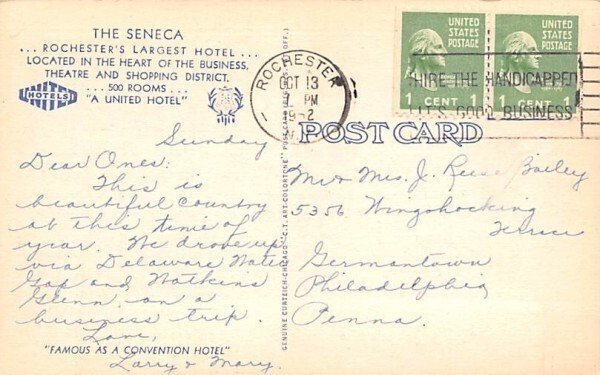 THE SENECA
... ROCHESTER'S LARGEST HOTEL ...
LOCATED IN THE HEART OF THE BUSINESS,
THEATRE AND SHOPPING DISTRICT.
... 500 ROOMS ...
"A UNITED HOTEL"
UNITED
HOTELS
UNITED
STATES
POSTAGE
1 CENT 1
UNITED
STATES
POSTAGE
1 CENT 1
ROCHESTER
OCT 13
PM
HIRE THE HANDICAPPED
IT'S GOOD BUSINESS
POST CARD
Sunday
Dear Ones:
This is
beautiful country
at this time of
year. We drove up
via Delaware Water
Gap and Watkins
Glenn on a
business trip.
Love,
Larry & Mary.
"FAMOUS AS A CONVENTION HOTEL"
GENUINE CURTEICH-CHICAGO "C.T. ART-COLORTONE" POST CARD
Mr & Mrs. J. Reese Bailey
5356 Wingohocking
Terrace
Germantown
Philadelphia
Penna.